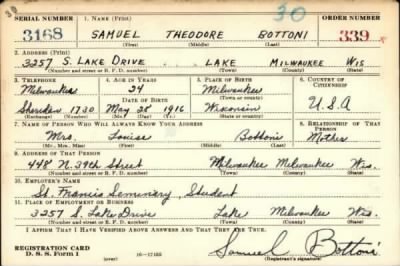 30
SERIAL NUMBER 1. NAME (Print) ORDER NUMBER
3168 SAMUEL THEODORE BOTTONI 339
(First) (Middle) (Last)
2. ADDRESS (Print)
3257 S. LAKE DRIVE LAKE MILWAUKEE WIS
(Number and street or R. F. D. number) (Town) (County) (State)
3. TELEPHONE 4. AGE IN YEARS 5. PLACE OF BIRTH 6. COUNTRY OF CITIZENSHIP
Milwaukee 24 Milwaukee
DATE OF BIRTH (Town or county)
Sheridan 1730 May 28 1916 Wisconsin U.S.A
(Exchange) (Number) (Mo.) (Day) (Yr.) (State or country)
7. NAME OF PERSON WHO WILL ALWAYS KNOW YOUR ADDRESS 8. RELATIONSHIP OF THAT PERSON
Mrs. Louise Bottoni Mother
(Mr., Mrs., Miss) (First) (Middle) (Last)
9. ADDRESS OF THAT PERSON
448 N. 39th Street Milwaukee Milwaukee Wis.
(Number and street or R. F. D. number) (Town) (County) (State)
10. EMPLOYER'S NAME
St. Francis Seminary, Student
11. PLACE OF EMPLOYMENT OR BUSINESS
3257 S. Lake Drive Lake Milwaukee Wis.
(Number and street or R. F. D. number) (Town) (County) (State)
I AFFIRM THAT I HAVE VERIFIED ABOVE ANSWERS AND THAT THEY ARE TRUE.
REGISTRATION CARD
D. S. S. Form 1 (over) 16—17105 Samuel Bottoni
(Registrant's signature)